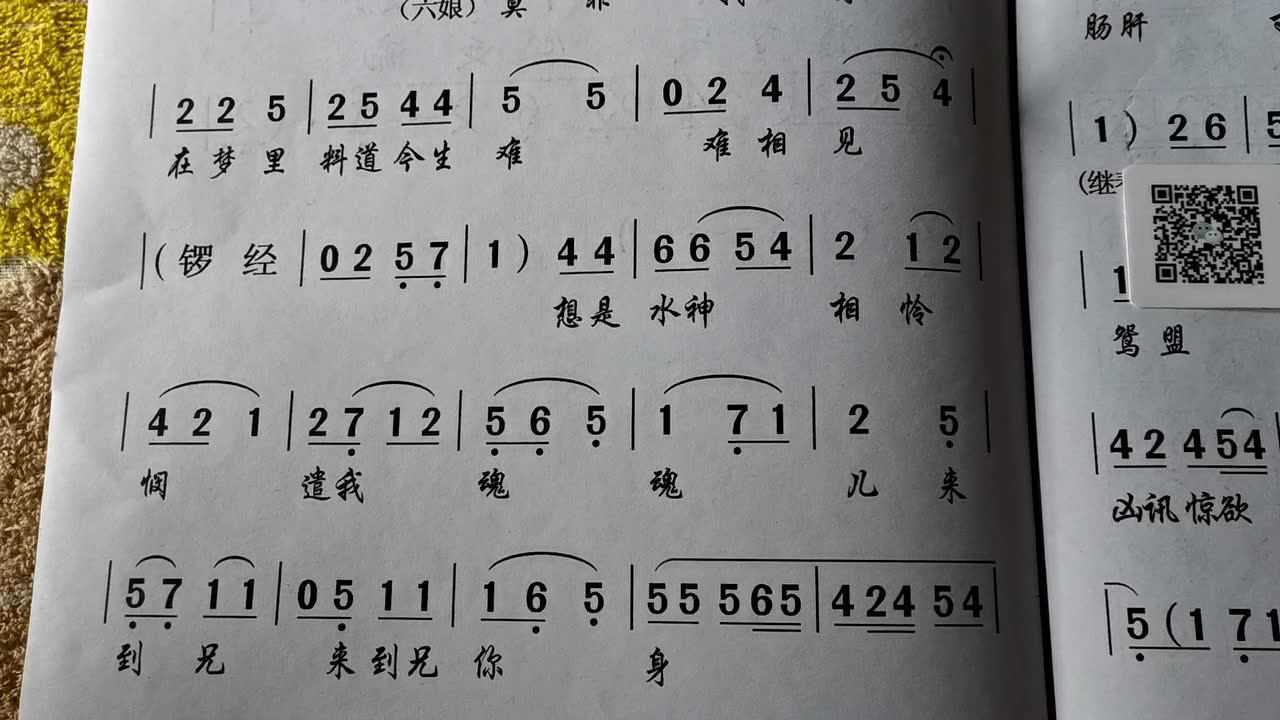 （六娘）莫
| 2 2 5 | 2 5 4 4 | 5 5 | 0 2 4 | 2 5 4 |
在梦里 料道今生 难 难相 见
|（锣 经 | 0 2 5 7 | 1 ）4 4 | 6 6 5 4 | 2 1 2 |
想是 水神 相 怜
| 4 2 1 | 2 7 1 2 | 5 6 5 | 1 7 1 | 2 5 |
悯 遣我 魂 魂 儿 来
| 5 7 1 1 | 0 5 1 1 | 1 6 5 | 5 5 5 6 5 | 4 2 4 5 4 |
到 兄 来到兄 你 身
肠肝
| 1 ）2 6 | 5
（继
| 1
鸳盟
| 4 2 4 5 4
凶讯惊欲
| 5（1 7 1